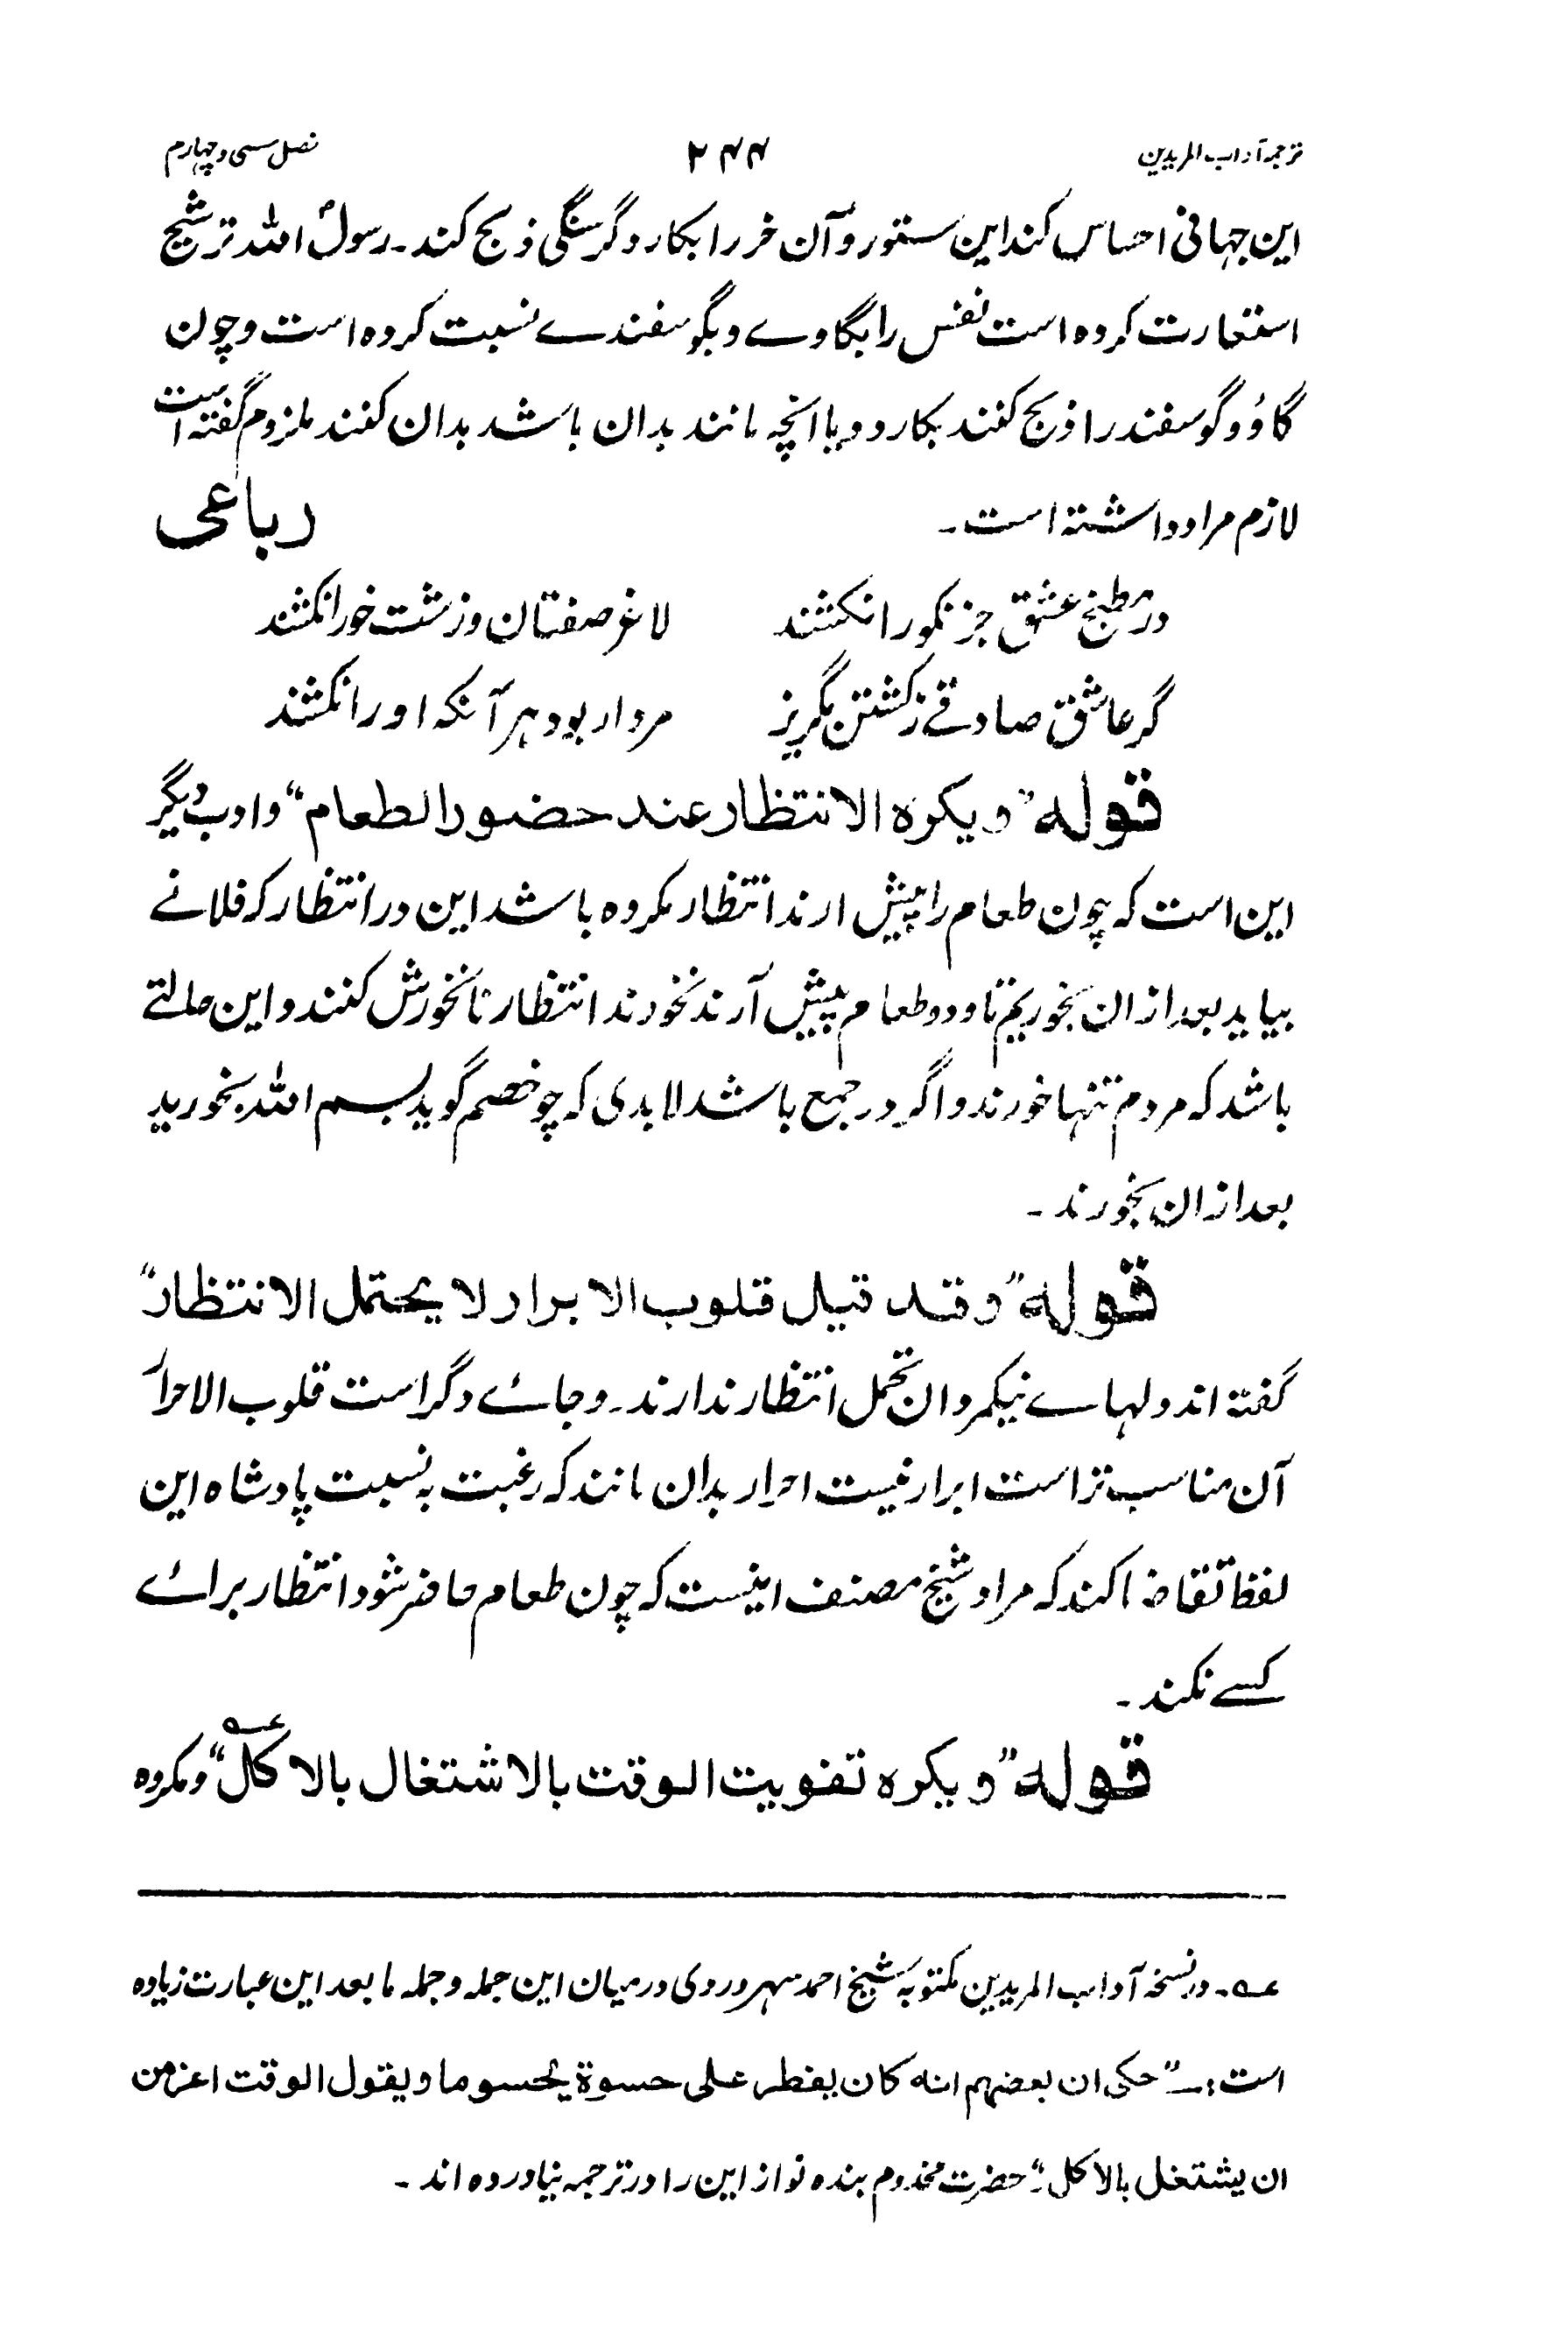 ترجمہ آداب المریدین ۲۴۴ فصل سی و چہارم
این جہانی احساس کند این ستور و آن خر را بکارد گرسنگی ذبح کند۔ رسولؐ اللہ ترشیح
استعارت کردہ است نفس را بگاوے و بگوسفندے نسبت کردہ است و چون
گاؤ و گوسفند را ذبح کنند بکارد و یا انچہ مانند بدان باشد بدان کنند ملزوم گفتہ است
لازم مراد داشتہ است۔ رباعی
در مطبخ عشق جز نکو را نکشند لاغر صفتان و زشت خو را نکشند
گر عاشق صادقے ز کشتن مگریز مردار بود ہر آنکہ او را نکشند
قولہ ”ویکرہ الانتظار عند حضور الطعام“ و ادب دیگر
این است کہ چون طعام را پیش ارند انتظار مکروہ باشد این در انتظار کہ فلانے
بیاید بعد ازان بخوریم تا و دو طعام پیش آرند نخورند انتظار نانخورش کنند و این حالتے
باشد کہ مردم تنہا خورند و اگر در جمع باشد لابدی کہ چو خصم گوید بسم اللہ بخورید
بعد ازان بخورند۔
قولہ ”وقد قیل قلوب الابرار لا یحتمل الانتظار“
گفتہ اند دلہاے نیکمردان تحمل انتظار ندارند۔ و جائے دگر است قلوب الاحرار
آن مناسب تر است ابرار نیست احرار بدان مانند کہ رغبت بہ نسبت پادشاہ این
لفظ تقاضا کند کہ مراد شیخ مصنف اینست کہ چون طعام حاضر شود انتظار برائے
کسے نکند۔
قولہ ”ویکرہ تفویت الوقت بالاشتغال بالاکل“ عہ و مکروہ
عہ۔ در نسخہ آداب المریدین مکتوبہ شیخ احمد سہروردی درمیان این جملہ و جملہ ما بعد این عبارت زیادہ
است:۔ ”حکی ان بعضہم انہ کان یفطر علی حسوة یحسوہا و یقول الوقت اعز من
ان یشتغل بالاکل“۔ حضرت مخدوم بندہ نواز این را در ترجمہ نیاوردہ اند۔